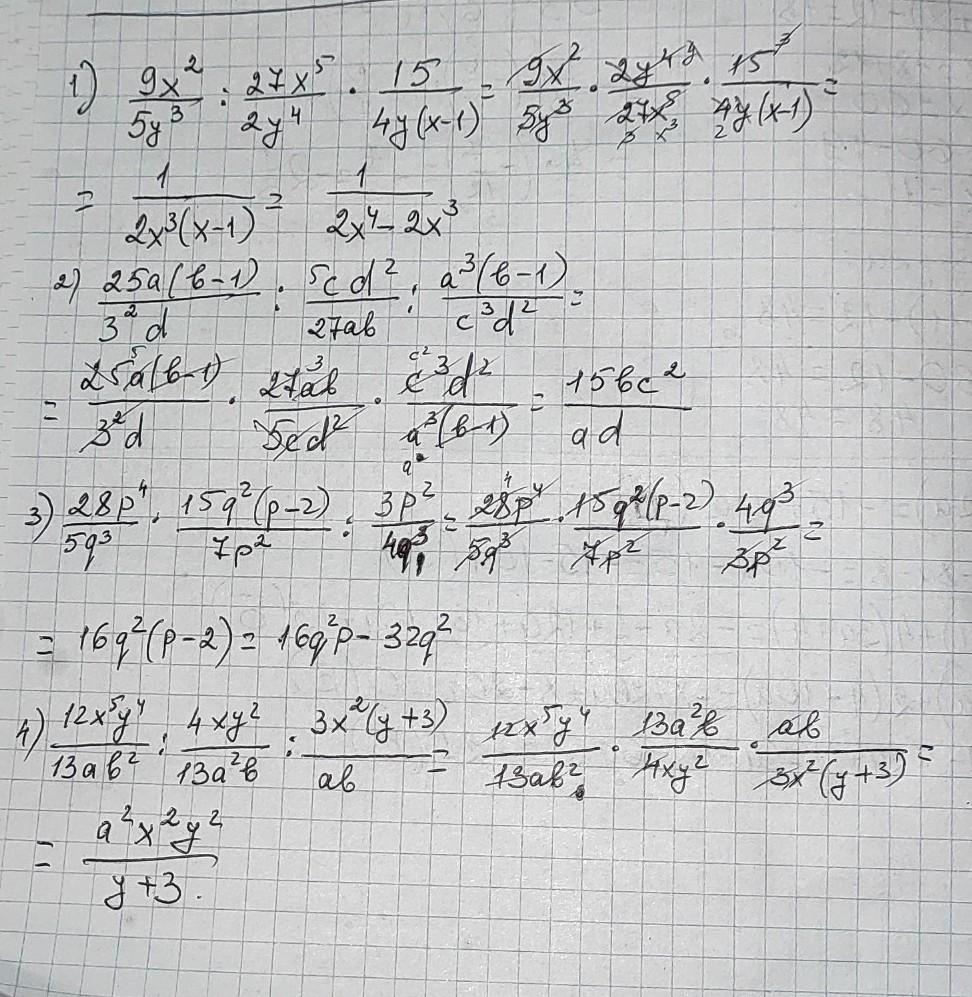 1) 9x²/5y³ : 27x⁵/2y⁴ · 15/4y(x-1) = 9x²/5y³ · 2y⁴ʸ/27x⁵ · 15³/4y(x-1) =
3 x³ 2
= 1/2x³(x-1) = 1/2x⁴-2x³
2) 25a(b-1)/3²d : 5cd²/27ab : a³(b-1)/c³d² =
= 25⁵a(b-1)/3²d · 27³ab/5cd² · c³d²/a³(b-1) = 15bc²/ad
c²
a
3) 28p⁴/5q³ · 15q²(p-2)/7p² : 3p²/4q³ = 28⁴p⁴/5q³ · 15q²(p-2)/7p² · 4q³/3p² =
= 16q²(p-2) = 16q²p - 32q²
4) 12x⁵y⁴/13ab² : 4xy²/13a²b : 3x²(y+3)/ab = 12x⁵y⁴/13ab² · 13a²b/4xy² · ab/3x²(y+3) =
= a²x²y²/y+3.